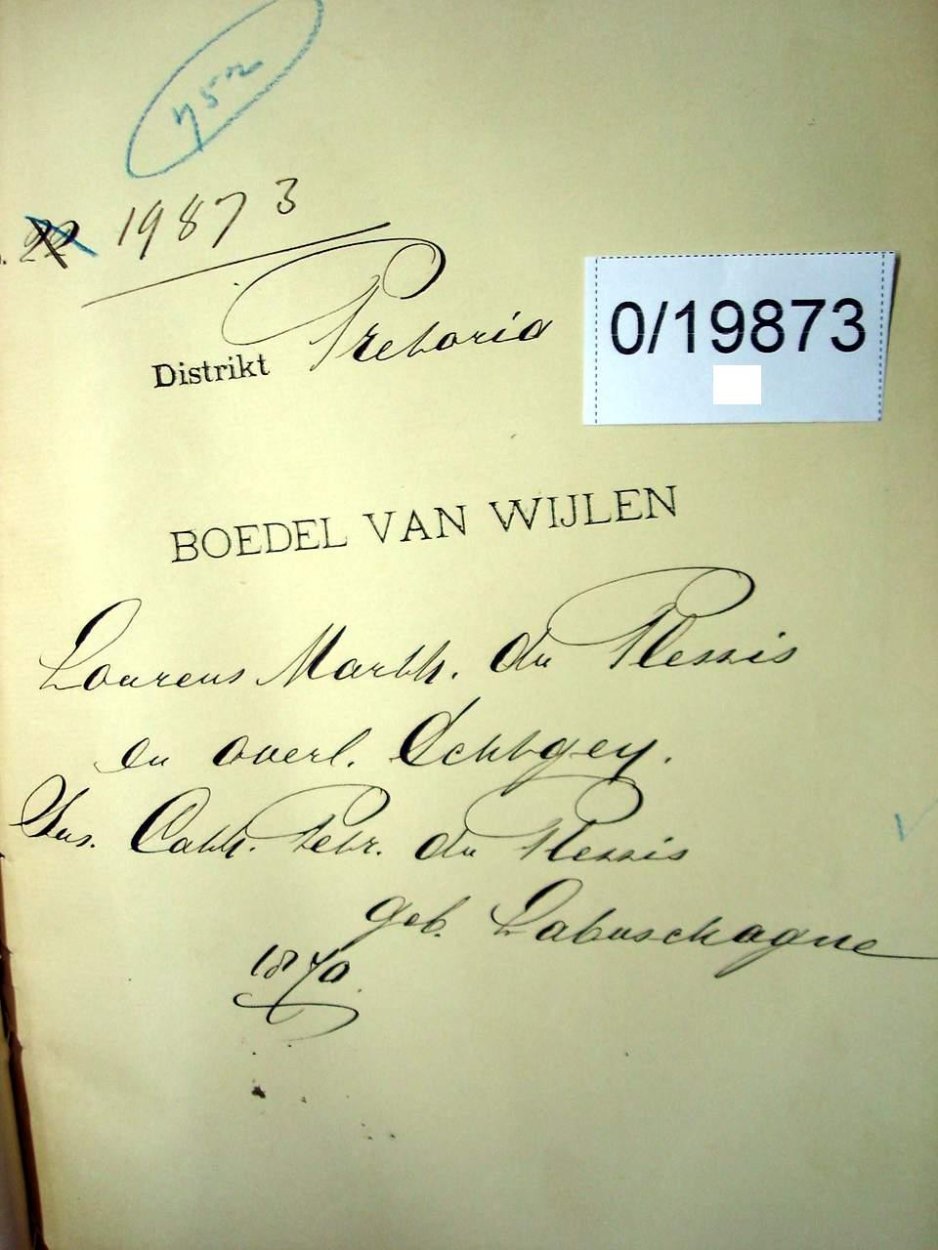 752
19873
0/19873
Distrikt Pretoria
BOEDEL VAN WIJLEN
Lourens Marth. du Plessis
en overl. Echtgen.
Sus. Cath. Petr. du Plessis
geb. Labuschagne
1870